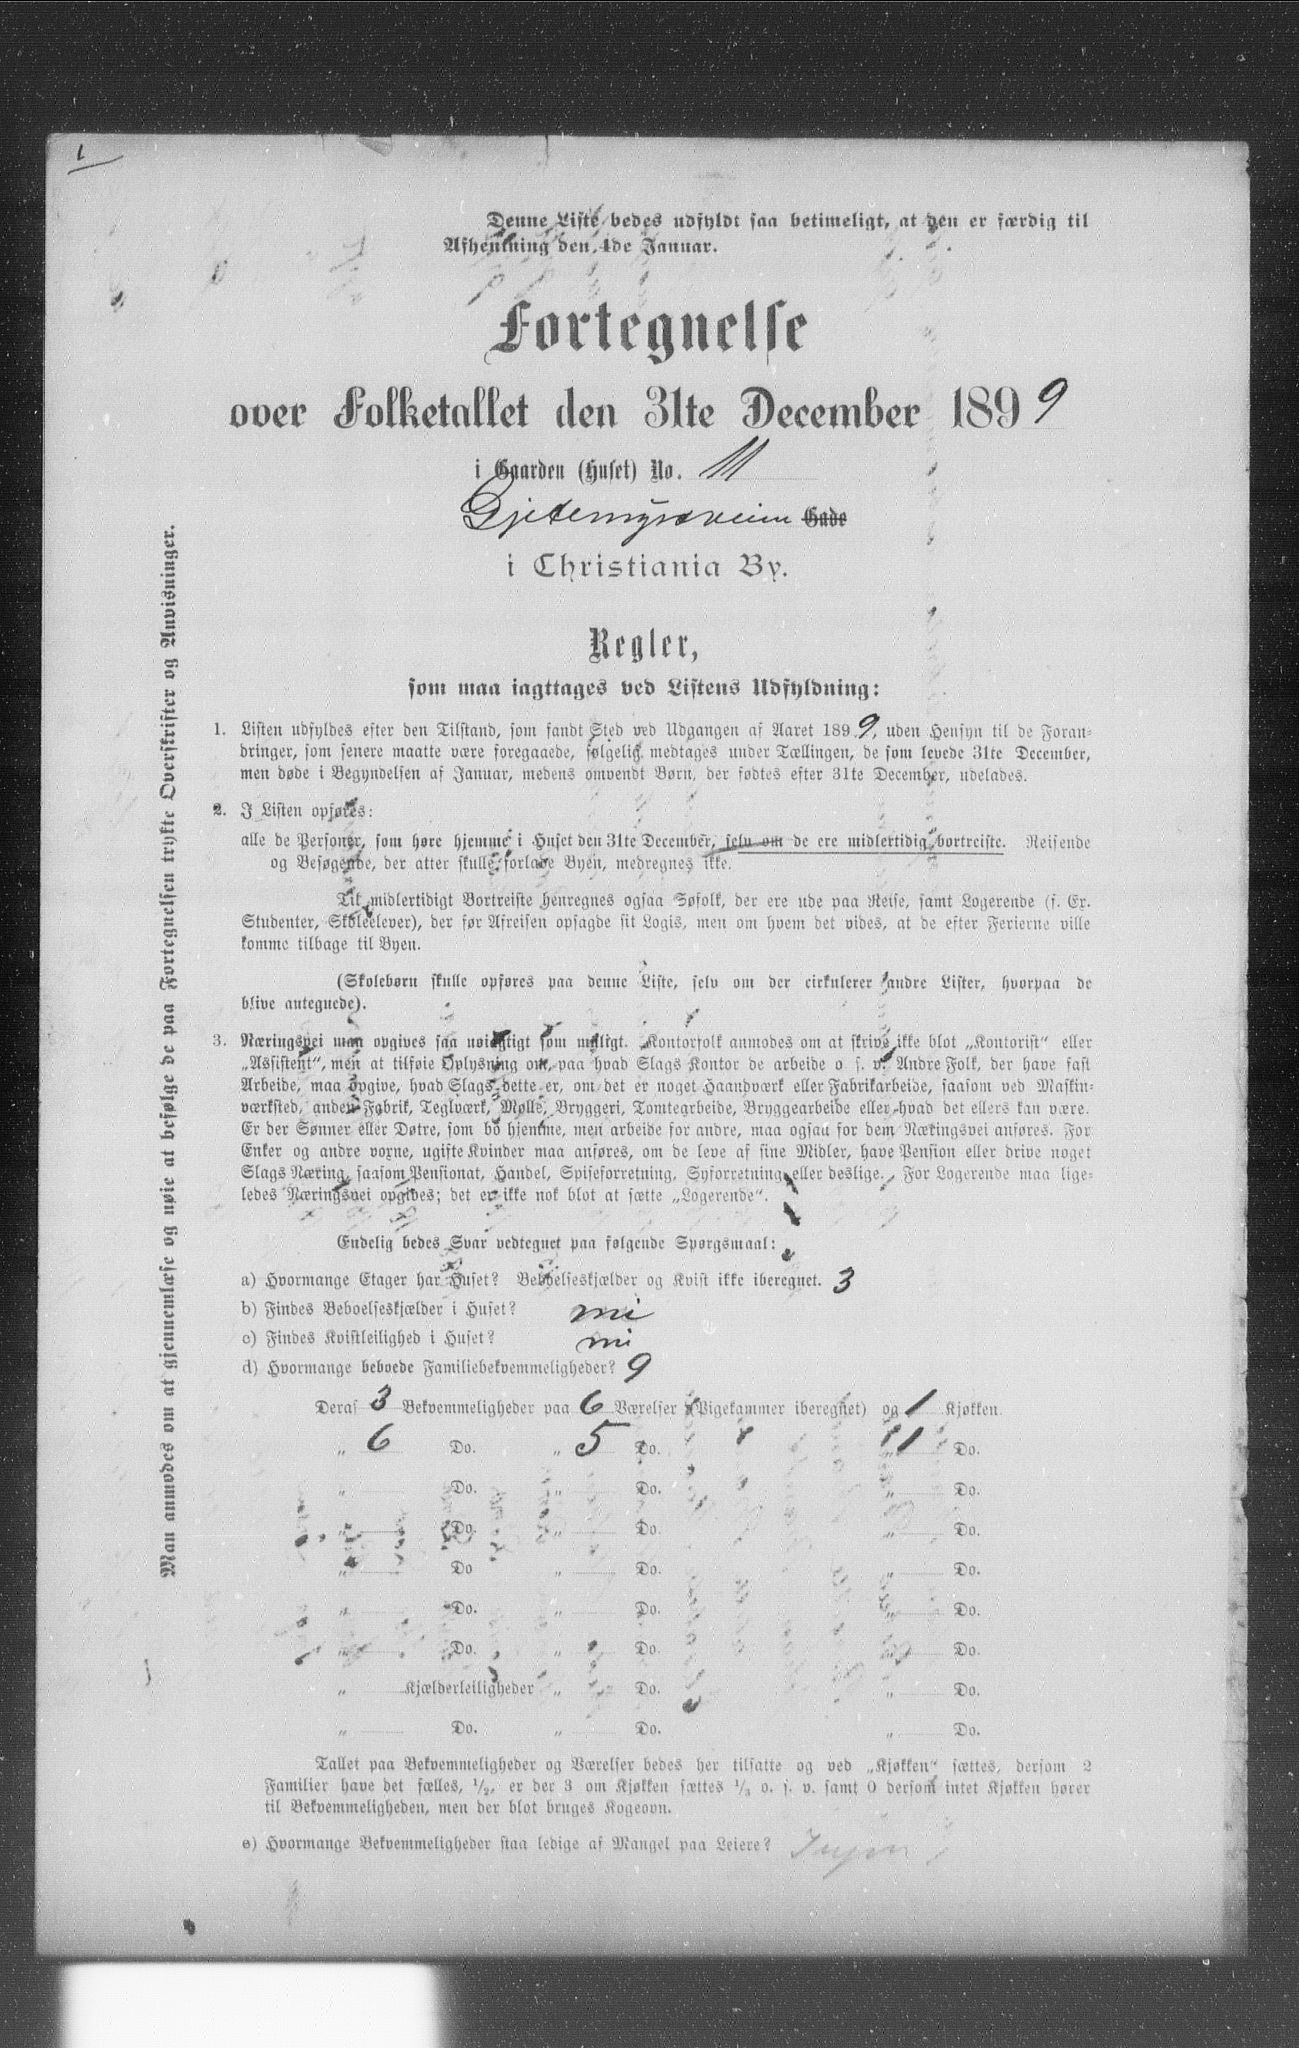 1
Denne Liste bedes udfyldt saa betimeligt, at den er færdig til
Afhentning den 4de Januar.
Fortegnelse
over Folketallet den 31te December 1899
i Gaarden (Huset) No. 11
Gjetemyrsveien Gade
i Christiania By.
Regler,
som maa iagttages ved Listens Udfyldning:
1. Listen udfyldes efter den Tilstand, som fandt Sted ved Udgangen af Aaret 1899, uden Hensyn til de Foran-
dringer, som senere maatte være foregaaede, følgelig medtages under Tællingen, de som levede 31te December,
men døde i Begyndelsen af Januar, medens omvendt Børn, der fødtes efter 31te December, udelades.
2. I Listen opføres:
alle de Personer, som høre hjemme i Huset den 31te December, selv om de ere midlertidig bortreiste. Reisende
og Besøgende, der atter skulle forlade Byen, medregnes ikke.
Til midlertidigt Bortreiste henregnes ogsaa Søfolk, der ere ude paa Reise, samt Logerende (f. Ex.
Studenter, Skoleelever), der før Afreisen opsagde sit Logis, men om hvem det vides, at de efter Ferierne ville
komme tilbage til Byen.
(Skolebørn skulle opføres paa denne Liste, selv om der cirkulerer andre Lister, hvorpaa de
blive antegnede).
3. Næringsvei maa opgives saa nøiagtigt som muligt. Kontorfolk anmodes om at skrive ikke blot „Kontorist“ eller
„Assistent“, men at tilføie Oplysning om, paa hvad Slags Kontor de arbeide o. s. v. Andre Folk, der have fast
Arbeide, maa opgive, hvad Slags dette er, om det er noget Haandværk eller Fabrikarbeide, saasom ved Maskin-
værksted, anden Fabrik, Teglværk, Mølle, Bryggeri, Tomtearbeide, Bryggearbeide eller hvad det ellers kan være.
Er der Sønner eller Døtre, som bo hjemme, men arbeide for andre, maa ogsaa for dem Næringsvei anføres. For
Enker og andre voxne, ugifte Kvinder maa anføres, om de leve af sine Midler, have Pension eller drive noget
Slags Næring, saasom Pensionat, Handel, Spiseforretning, Syforretning eller deslige. For Logerende maa lige-
ledes Næringsvei opgives; det er ikke nok blot at sætte „Logerende“.
Endelig bedes Svar vedtegnet paa følgende Spørgsmaal:
a) Hvormange Etager har Huset? Beboelseskjælder og Kvist ikke iberegnet. 3
b) Findes Beboelseskjælder i Huset?
c) Findes Kvistleilighed i Huset?
d) Hvormange beboede Familiebekvemmeligheder? 9
Deraf 3 Bekvemmeligheder paa 6 Værelser (Pigekammer iberegnet) og 1 Kjøkken.
„ 6 Do. „ 5 Do. „ 1 Do.
„ Do. „ Do. „ Do.
„ Do. „ Do. „ Do.
„ Do „ Do. „ Do.
„ Do. „ Do. „ Do.
„ Do. „ Do. „ Do.
„ Kjælderleiligheder „ Do. „ Do.
„ Do. „ Do. „ Do.
Tallet paa Bekvemmeligheder og Værelser bedes her tilsatte og ved „Kjøkken“ sættes, dersom 2
Familier have det fælles, 1/2, er der 3 om Kjøkken sættes 1/3 o. s. v. samt 0 dersom intet Kjøkken hører
til Bekvemmeligheden, men der blot bruges Kogeovn.
e) Hvormange Bekvemmeligheder staa ledige af Mangel paa Leiere? Ingen
Man anmodes om at gjennemlæse og nøie at befølge de paa Fortegnelsen trykte Overskrifter og Anvisninger.